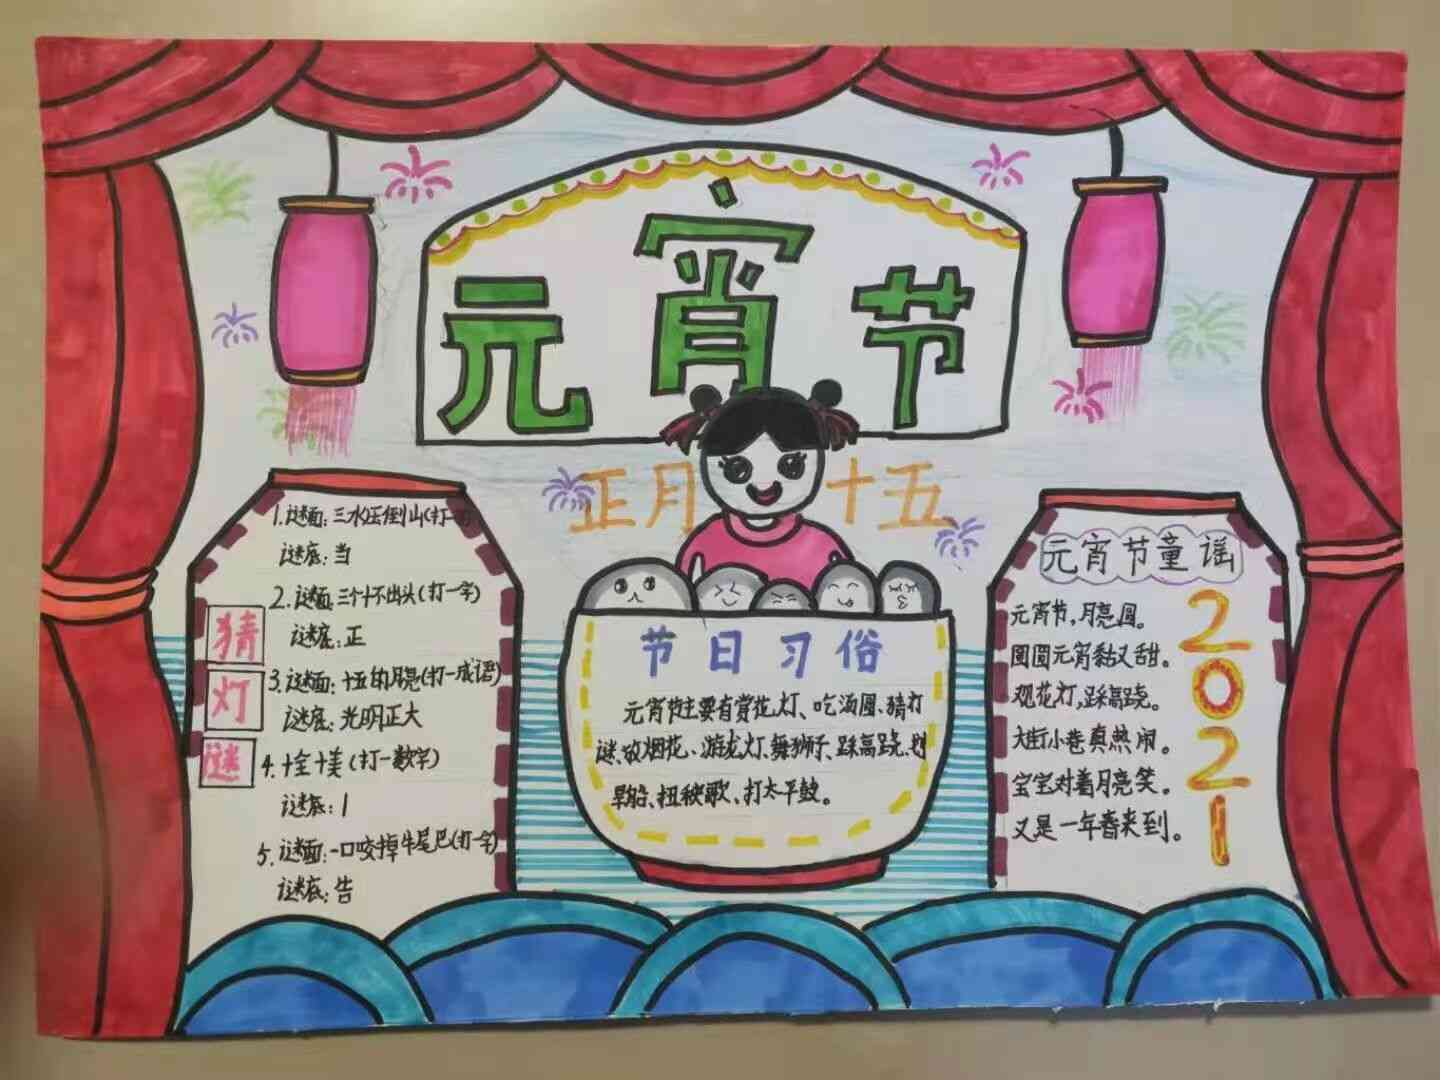 元宵节
正月十五
猜灯谜
1.谜面:三水压倒山(打一字)
谜底:当
2.谜面:三个十不出头(打一字)
谜底:正
3.谜面:十五的月亮(打一成语)
谜底:光明正大
4.十全十美(打一数字)
谜底:1
5.谜面:一口咬掉牛尾巴(打一字)
谜底:告
节日习俗
元宵节主要有赏花灯、吃汤圆、猜灯
谜、放烟花、游龙灯、舞狮子、踩高跷、划
旱船、扭秧歌、打太平鼓。
元宵节童谣
元宵节,月亮圆。
圆圆元宵黏又甜。
观花灯,踩高跷。
大街小巷真热闹。
宝宝对着月亮笑。
又是一年春来到。
2021